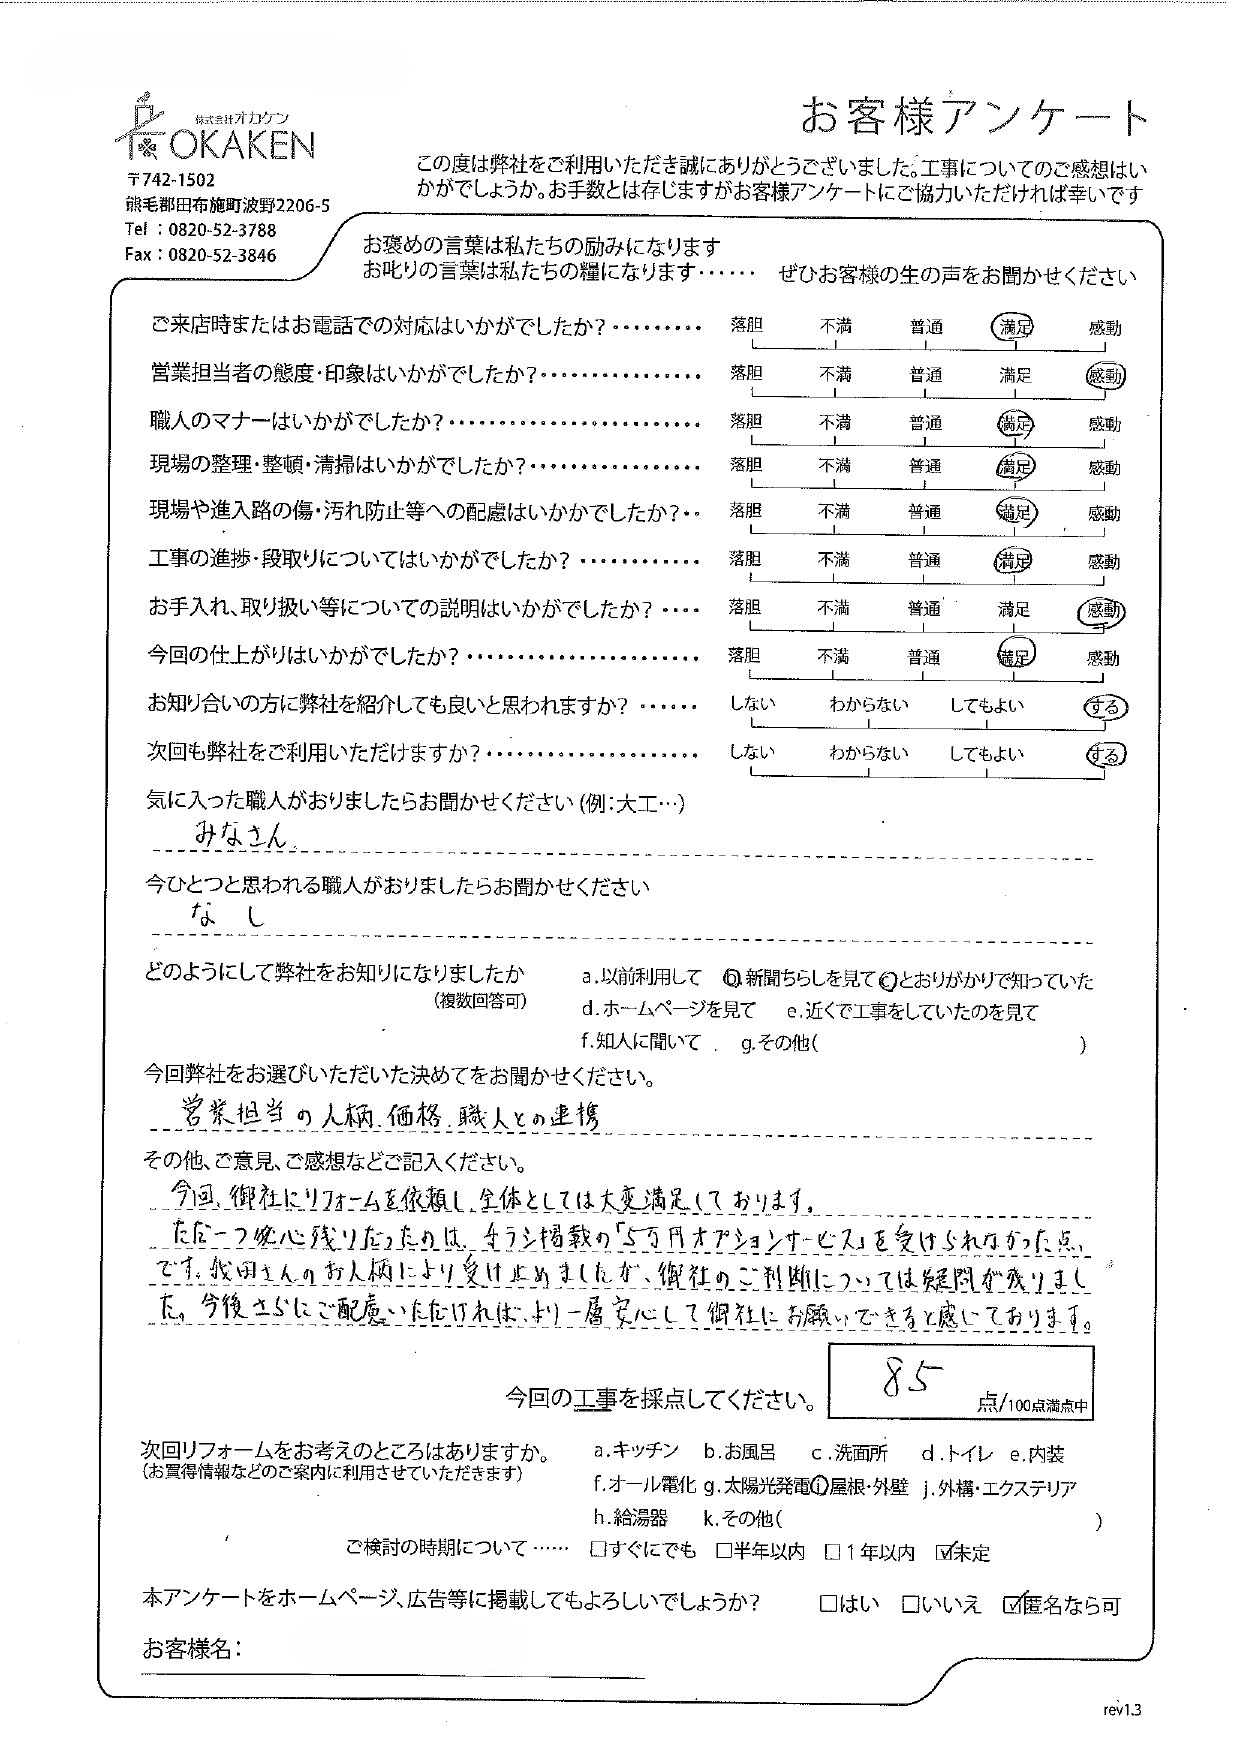 株式会社オカケン
OKAKEN
お客様アンケート
〒742-1502
熊毛郡田布施町波野2206-5
Tel : 0820-52-3788
Fax : 0820-52-3846
この度は弊社をご利用いただき誠にありがとうございました。工事についてのご感想はい
かがでしょうか。お手数とは存じますがお客様アンケートにご協力いただければ幸いです
お褒めの言葉は私たちの励みになります
お叱りの言葉は私たちの糧になります…… ぜひお客様の生の声をお聞かせください
ご来店時またはお電話での対応はいかがでしたか?……… 落胆 不満 普通 満足 感動
営業担当者の態度・印象はいかがでしたか?…………… 落胆 不満 普通 満足 感動
職人のマナーはいかがでしたか?…………………… 落胆 不満 普通 満足 感動
現場の整理・整頓・清掃はいかがでしたか?…………… 落胆 不満 普通 満足 感動
現場や進入路の傷・汚れ防止等への配慮はいかかでしたか?‥ 落胆 不満 普通 満足 感動
工事の進捗・段取りについてはいかがでしたか? ………… 落胆 不満 普通 満足 感動
お手入れ、取り扱い等についての説明はいかがでしたか? ‥‥ 落胆 不満 普通 満足 感動
今回の仕上がりはいかがでしたか?…………………… 落胆 不満 普通 満足 感動
お知り合いの方に弊社を紹介しても良いと思われますか? …… しない わからない してもよい する
次回も弊社をご利用いただけますか?………………… しない わからない してもよい する
気に入った職人がおりましたらお聞かせください(例:大工…)
みなさん
今ひとつと思われる職人がおりましたらお聞かせください
なし
どのようにして弊社をお知りになりましたか a.以前利用して b.新聞ちらしを見て c.とおりがかりで知っていた
(複数回答可) d.ホームページを見て e.近くで工事をしていたのを見て
f.知人に聞いて g.その他( )
今回弊社をお選びいただいた決めてをお聞かせください。
営業担当の人柄、価格、職人との連携
その他、ご意見、ご感想などご記入ください。
今回、御社にリフォームを依頼し、全体としては大変満足しております。
ただ一つ残念心残りだったのは、チラシ掲載の「5万円オプションサービス」を受けられなかった点
です。我田さんのお人柄により受け止めましたが、御社のご判断については疑問が残りまし
た。今後さらにご配慮いただければ、より一層安心して御社にお願いできると感じております。
今回の工事を採点してください。 85 点/100点満点中
次回リフォームをお考えのところはありますか。 a.キッチン b.お風呂 c.洗面所 d.トイレ e.内装
(お買得情報などのご案内に利用させていただきます) f.オール電化 g.太陽光発電 i.屋根・外壁 j.外構・エクステリア
h.給湯器 k.その他( )
ご検討の時期について…… □すぐにでも □半年以内 □1年以内 ☑未定
本アンケートをホームページ、広告等に掲載してもよろしいでしょうか? □はい □いいえ ☑匿名なら可
お客様名:
rev1.3